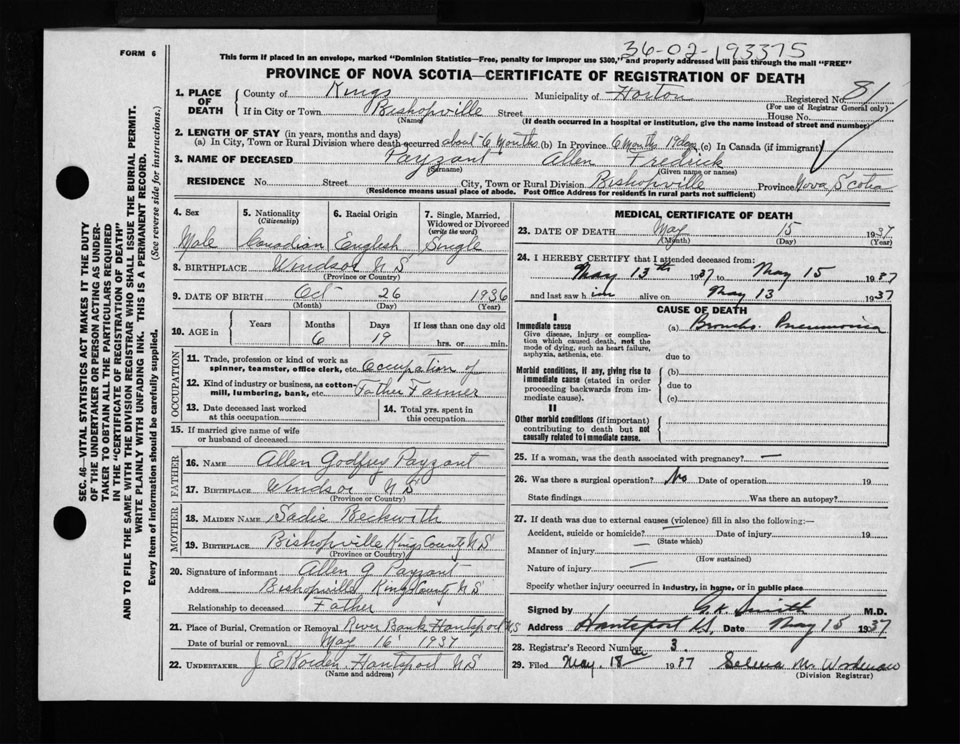 FORM 6
36-02-193375
This form if placed in an envelope, marked "Dominion Statistics—Free, penalty for improper use $300," and properly addressed will pass through the mail "FREE"
PROVINCE OF NOVA SCOTIA—CERTIFICATE OF REGISTRATION OF DEATH
1. PLACE OF DEATH County of Kings Municipality of Horton Registered No. 81
(For use of Registrar General only)
If in City or Town Bishopville Street House No.
(Name) (If death occurred in a hospital or institution, give the name instead of street and number)
2. LENGTH OF STAY (in years, months and days)
(a) In City, Town or Rural Division where death occurred about 6 months (b) In Province 6 months 19 days (c) In Canada (if immigrant)
3. NAME OF DECEASED Payzant Allen Fredrick
(Surname) (Given name or names)
RESIDENCE No. Street City, Town or Rural Division Bishopville Province Nova Scotia
(Residence means usual place of abode. Post Office Address for residents in rural parts not sufficient)
SEC. 46—VITAL STATISTICS ACT MAKES IT THE DUTY
OF THE UNDERTAKER OR PERSON ACTING AS UNDER-
TAKER TO OBTAIN ALL THE PARTICULARS REQUIRED
IN THE "CERTIFICATE OF REGISTRATION OF DEATH"
AND TO FILE THE SAME WITH THE DIVISION REGISTRAR WHO SHALL ISSUE THE BURIAL PERMIT.
WRITE PLAINLY WITH UNFADING INK. THIS IS A PERMANENT RECORD.
Every item of information should be carefully supplied. (See reverse side for instructions.)
4. Sex 5. Nationality (Citizenship) 6. Racial Origin 7. Single, Married, Widowed or Divorced (write the word)
Male Canadian English Single
8. BIRTHPLACE Windsor N S
(Province or Country)
9. DATE OF BIRTH Oct 26 1936
(Month) (Day) (Year)
10. AGE in Years Months Days If less than one day old
6 19 hrs. or min.
OCCUPATION
11. Trade, profession or kind of work as
spinner, teamster, office clerk, etc. Occupation of
12. Kind of industry or business, as cotton-
mill, lumbering, bank, etc. Father Farmer
13. Date deceased last worked at this occupation 14. Total yrs. spent in this occupation
15. If married give name of wife
or husband of deceased
FATHER
16. NAME Allen Godfrey Payzant
17. BIRTHPLACE Windsor N S
(Province or Country)
MOTHER
18. MAIDEN NAME Sadie Beckwith
19. BIRTHPLACE Bishopville Kings County N S
(Province or Country)
20. Signature of informant Allen G Payzant
Address Bishopville Kings County N S
Relationship to deceased Father
21. Place of Burial, Cremation or Removal River Bank Hantsport N S
Date of burial or removal May 16 1937
22. UNDERTAKER Hantsport N S
(Name and address)
MEDICAL CERTIFICATE OF DEATH
23. DATE OF DEATH May 15 1937
(Month) (Day) (Year)
24. I HEREBY CERTIFY that I attended deceased from:
May 13th 1937 to May 15 1937
and last saw him alive on May 13 1937
CAUSE OF DEATH
I
Immediate cause (a) Broncho. Pneumonia
Give disease, injury or complica-
tion which caused death, not the
mode of dying, such as heart failure,
asphyxia, asthenia, etc. due to
Morbid conditions, if any, giving rise to (b)
immediate cause (stated in order due to
proceeding backwards from im-
mediate cause). (c)
II
Other morbid conditions (if important)
contributing to death but not
causally related to immediate cause.
25. If a woman, was the death associated with pregnancy? —
26. Was there a surgical operation? No Date of operation 19
State findings Was there an autopsy?
27. If death was due to external causes (violence) fill in also the following:-
Accident, suicide or homicide? — Date of injury 19
(State which)
Manner of injury —
(How sustained)
Nature of injury —
Specify whether injury occurred in industry, in home, or in public place
Signed by G.K. Smith M.D.
Address Hantsport N.S. Date May 15 1937
28. Registrar's Record Number 3.
29. Filed May 18th 1937
(Division Registrar)